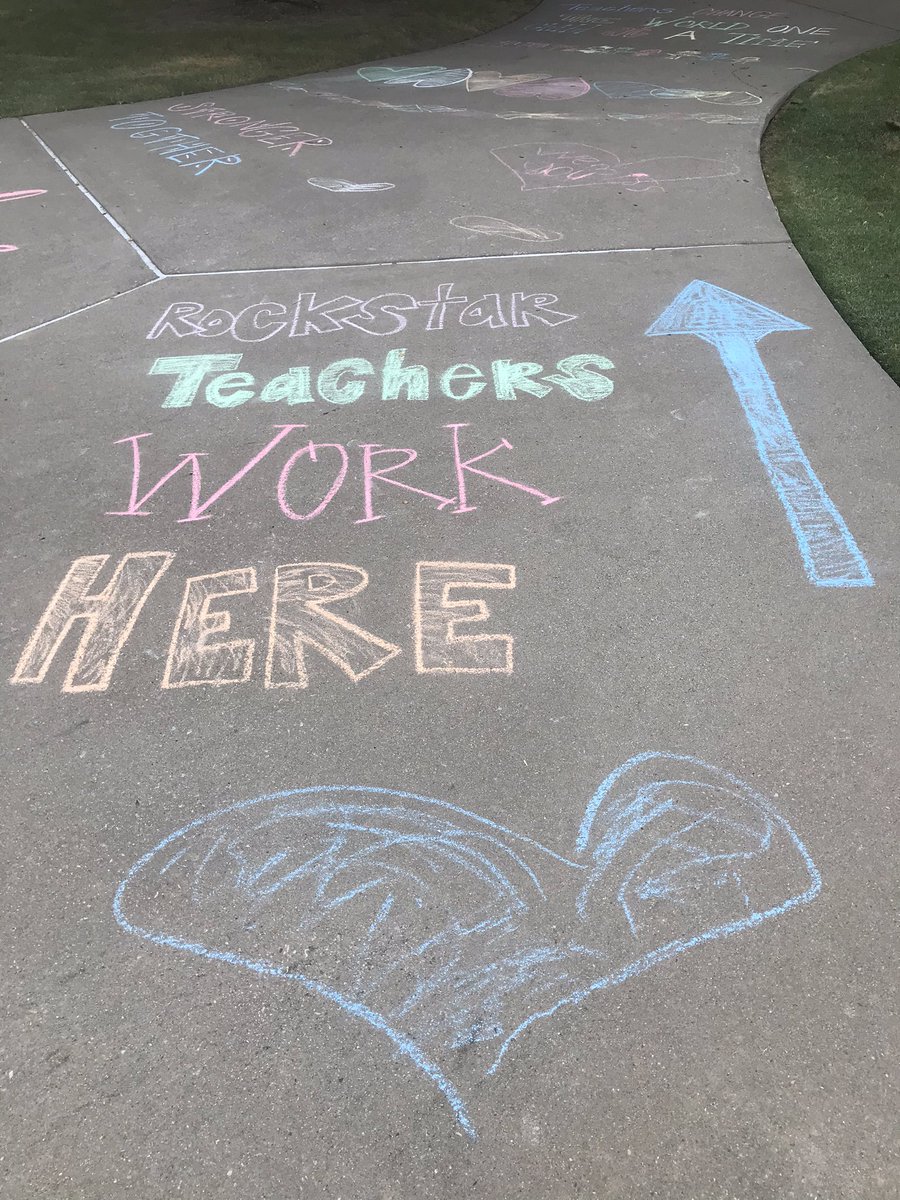 TEACHERS CHANGE
WORLD ONE
A TIME
STRONGER
TOGTHER
ROCKSTAR
TEACHERS
WORK
HERE